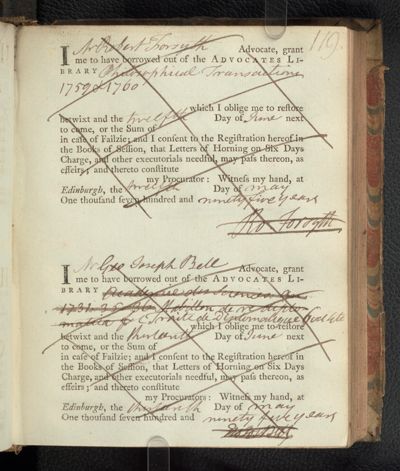 119.
I Mr Robert Forsyth Advocate, grant
me to have borrowed out of the ADVOCATES LI-
BRARY Philosophical Transactions
1759 & 1760
which I oblige me to restore
betwixt and the twelfth Day of June next
to come, or the Sum of
in case of Failzie; and I consent to the Registration hereof in
the Books of Session, that Letters of Horning on Six Days
Charge, and other executorials needful, may pass thereon, as
effeirs; and thereto constitute
my Procurator: Witness my hand, at
Edinburgh, the twelfth Day of May
One thousand seven hundred and ninety five years
Ro Forsyth
I Mr Geo Joseph Bell Advocate, grant
me to have borrowed out of the ADVOCATES LI-
BRARY Academie des Sciences
1731. 35 Mabillon de re diplo-
matica
which I oblige me to restore
betwixt and the thirteenth Day of June next
to come, or the Sum of
in case of Failzie; and I consent to the Registration hereof in
the Books of Session, that Letters of Horning on Six Days
Charge, and other executorials needful, may pass thereon, as
effeirs; and thereto constitute
my Procurator: Witness my hand, at
Edinburgh, the thirteenth Day of May
One thousand seven hundred and ninety five years